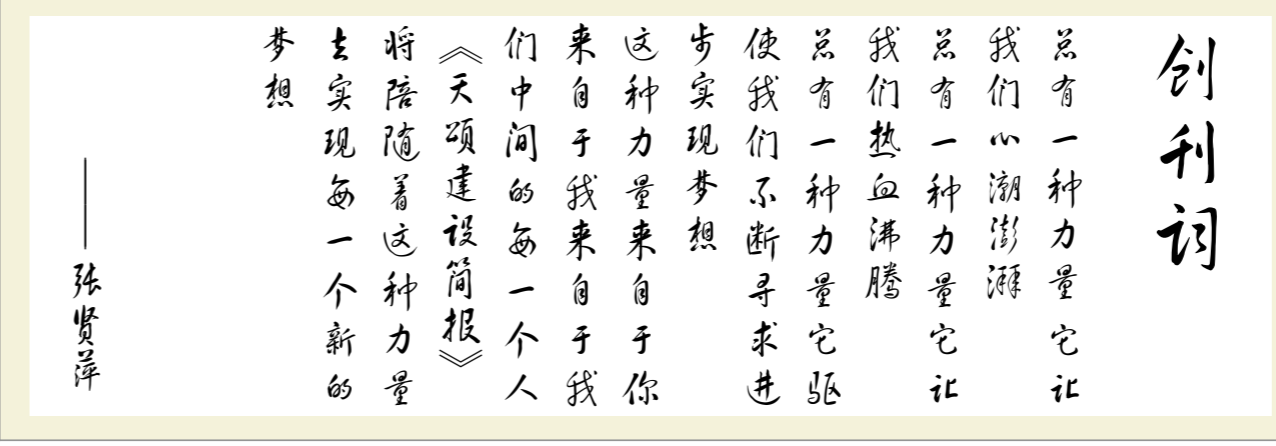 创刊词
总有一种力量它让
我们心潮澎湃
总有一种力量它让
我们热血沸腾
总有一种力量它驱
使我们不断寻求进
步实现梦想
这种力量来自于你
来自于我来自于我
们中间的每一个人
《天颂建设简报》
将陪随着这种力量
去实现每一个新的
梦想
——张贤萍